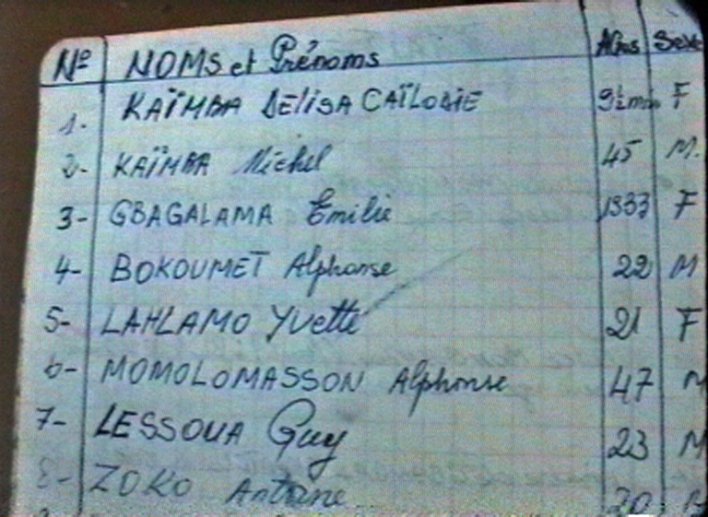 Nº NOMS et Prénoms Ages Sexe
1- KAÏMBA DELISA CAÏLODIE F
2- KAÏMBA Michel 45 M
3- GBAGALAMA Emilie 1933 F
4- BOKOUMET Alphonse 22 M
5- LAHLAMO Yvette 21 F
6- MOMOLOMASSON Alphonse 47 M
7- LESSOUA Guy 23 M
8- ZOKO Antoine 20